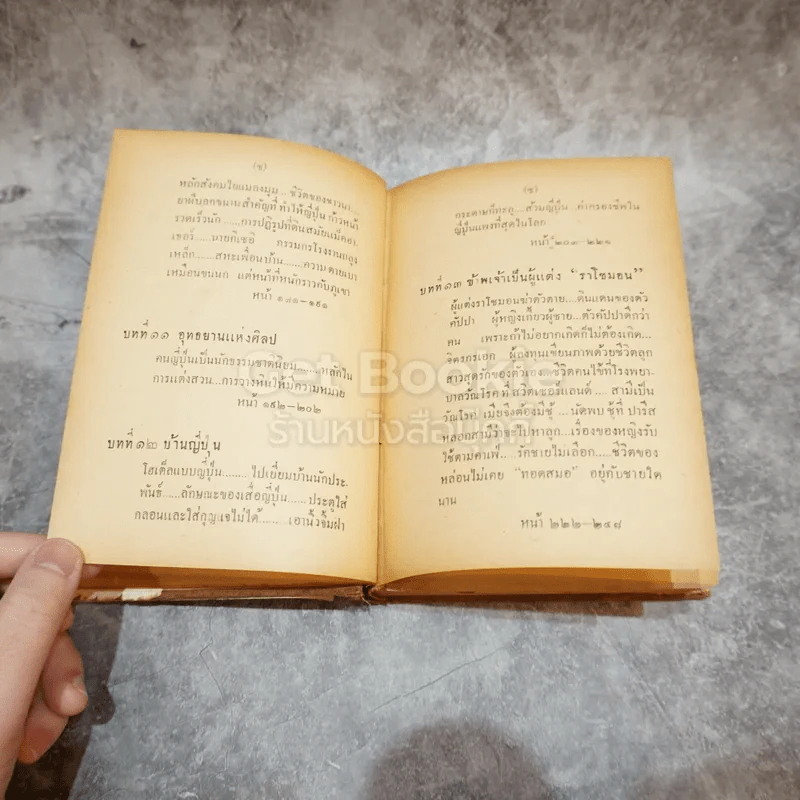 (ช)
หลังสังคมใยแมลงมุม....ชีวิตของชาวนา....
ยาผีบอกขนานสำคัญที่ ทำให้ญี่ปุ่น ก้าวหน้า
รวดเร็วนัก......การปฏิรูปที่ดินสมัยแม็คอา
เธอร์.....นายกิเซอิ กรรมกรโรงงานถลุง
เหล็ก......สหะเพื่อนบ้าน.......ความตายเบา
เหมือนขนนก แต่หน้าที่หนักราวกับภูเขา
หน้า ๑๘๑—๑๙๑
บทที่ ๑๑ อุทธยานแห่งศิลป
คนญี่ปุ่นเป็นนักธรรมชาตินิยม.......หลักใน
การแต่งสวน....การวางหินให้มีความหมาย
หน้า ๑๙๒—๒๐๒
บทที่ ๑๒ บ้านญี่ปุ่น
โฮเต็ลแบบญี่ปุ่น.........ไปเยี่ยมบ้านนักประ
พันธ์.....ลักษณะของเสื่อญี่ปุ่น......ประตูใส่
กลอนและใส่กุญแจไม่ได้........เอานิ้วจิ้มฝา
(ซ)
กระดาษก็ทะลุ....ส้วมญี่ปุ่น ค่าครองชีพใน
ญี่ปุ่นแพงที่สุดในโลก
หน้า ๒๐๓—๒๒๑
บทที่ ๑๓ ข้าพเจ้าเป็นผู้แต่ง “ราโชมอน”
ผู้แต่งราโชมอนฆ่าตัวตาย...ดินแดนของตัว
คัปปา ผู้หญิงเกี้ยวผู้ชาย...ตัวคัปปาดีกว่า
คน เพราะถ้าไม่อยากเกิดก็ไม่ต้องเกิด...
จิตรกรเอก ผู้ลงทุนเขียนภาพด้วยชีวิตลูก
สาวสุดรักของตัวเอง....ชีวิตคนไข้ที่โรงพยา-
บาลวัณโรค ที่ สวิตเซอร์แลนด์ .... สามีเป็น
วัณโรค เมียจึงต้องมีชู้ .. นัดพบ ชู้ที่ ปารีส
หลอกสามีว่าจะไปหาลูก...เรื่องของหญิงรับ
ใช้ตามคาเฟ่.....รักชายไม่เลือก.....ชีวิตของ
หล่อนไม่เคย “ทอดสมอ” อยู่กับชายใด
นาน
หน้า ๒๒๒—๒๔๘
Get Bookie
ร้านหนังสือมือ